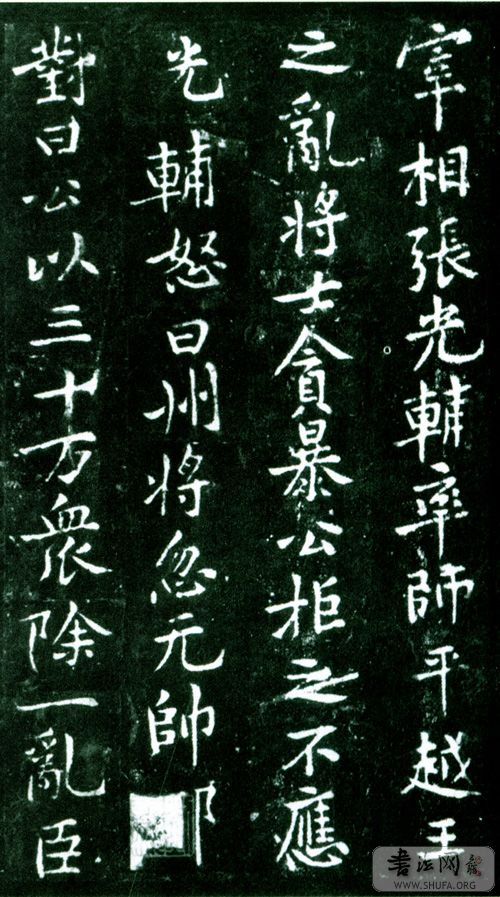 宰相張光輔率師平越王
之亂将士貪暴公拒之不應
光輔怒曰州将忽元帥
對曰公以三十万衆除一亂臣
书法网
WWW.SHUFA.ORG